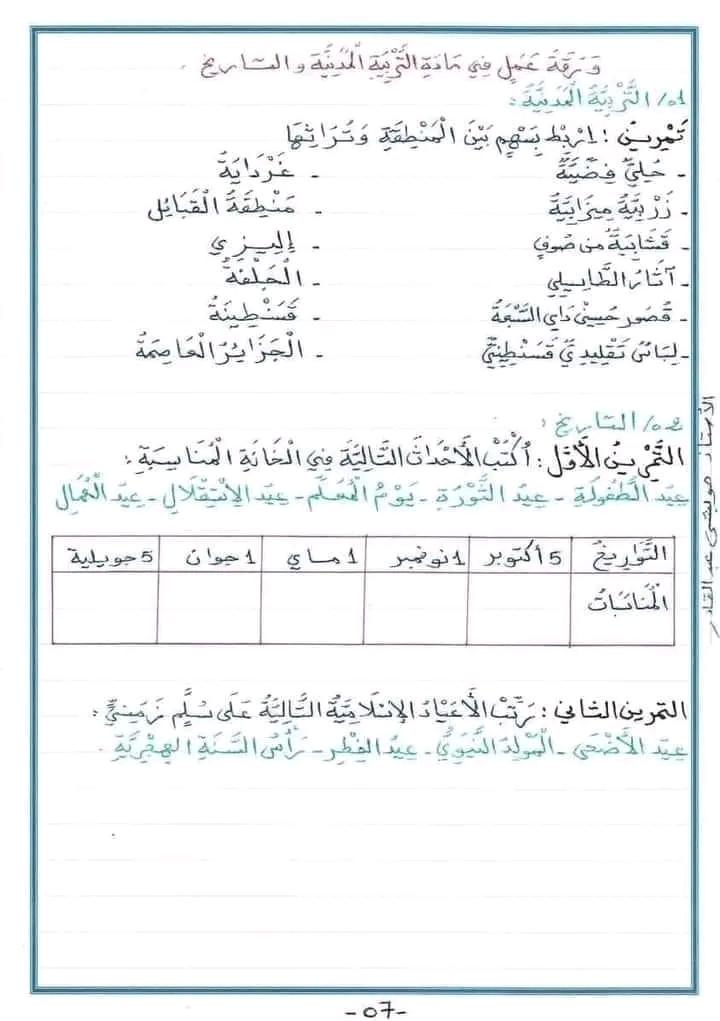 وَرَقَةُ عَمَلٍ فِي مَادَةِ التَّرْبِيَّةِ الْمَدَنِيَّةِ و التاريخ .
01/ التَّرْبِيَّةُ الْمَدَنِيَّةُ :
تَمْرِينٌ : اِرْبِطْ بِسَهْمٍ بَيْنَ الْمَنْطِقَةِ وَتُرَاثِهَا
- حُلِيٌّ فِضِّيَّةٌ - غَرْدَايَةُ
- زَرْبِيَّةٌ مِيزَابِيَّةٌ - مَنْطِقَةُ الْقَبَائِل
- قَشَابِيَةٌ من صُوفٍ - إليزي
- آثَارُ الطَّاسِيلِي - الْجَلْفَةُ
- قُصُور حُسِين دَاي السَّبْعَةُ - قَسَنْطِينَةُ
- لِبَاسٌ تَقْلِيدِيٌّ قَسَنْطِينِيٌّ - الْجَزَائِرُ الْعَاصِمَةُ
02/ التاريخ :
التَّمْرِينُ الْأَوَّلُ : اُكْتُبْ الْأَحْدَاثَ التَّالِيَّةَ فِي الْخَانَةِ الْمُنَاسِبَةِ :
عِيدُ الطُّفُولَةِ - عِيدُ الثَّوْرَةِ - يَوْمُ الْمُعَلِّمِ - عِيدُ الِاسْتِقْلَالِ - عِيدُ الْعُمَّالِ
التَّوَارِيخُ 5 أكتوبر 1 نوفمبر 1 ماي 1 جوان 5 جويلية
الْمُنَاسَبَاتُ
التمرين الثاني : رَتِّبْ الْأَعْيَادَ الْإِسْلَامِيَّةَ التَّالِيَّةَ عَلَى سُلَّمٍ زَمَنِيٍّ :
عِيدُ الْأَضْحَى - الْمَوْلِدُ النَّبَوِيُّ - عِيدُ الْفِطْرِ - رَأْسُ السَّنَةِ الْهِجْرِيَّةِ .
-07-